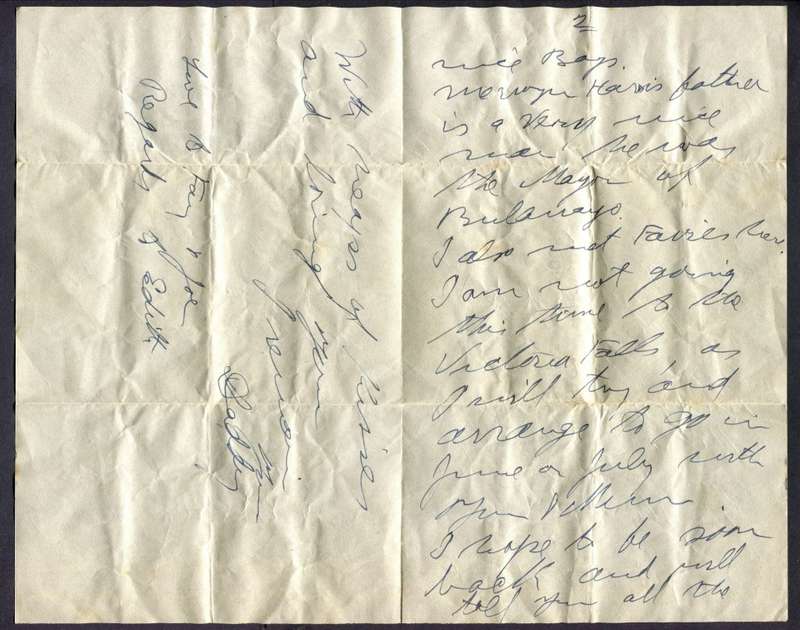 2
nice Boys.
Mervyn Harris father
is a very nice
man he was
the Mayor of
Bulawayo.
I also met Fairies her.
I am not going
this time to the
Victoria Falls, as
I will try and
arrange to go in
June or July with
you
I hope to be soon
back and will
tell you all the
With heaps of kisses
and loving you
I remain
your
Daddy
Love to Fay & Joe
Regards to Edith